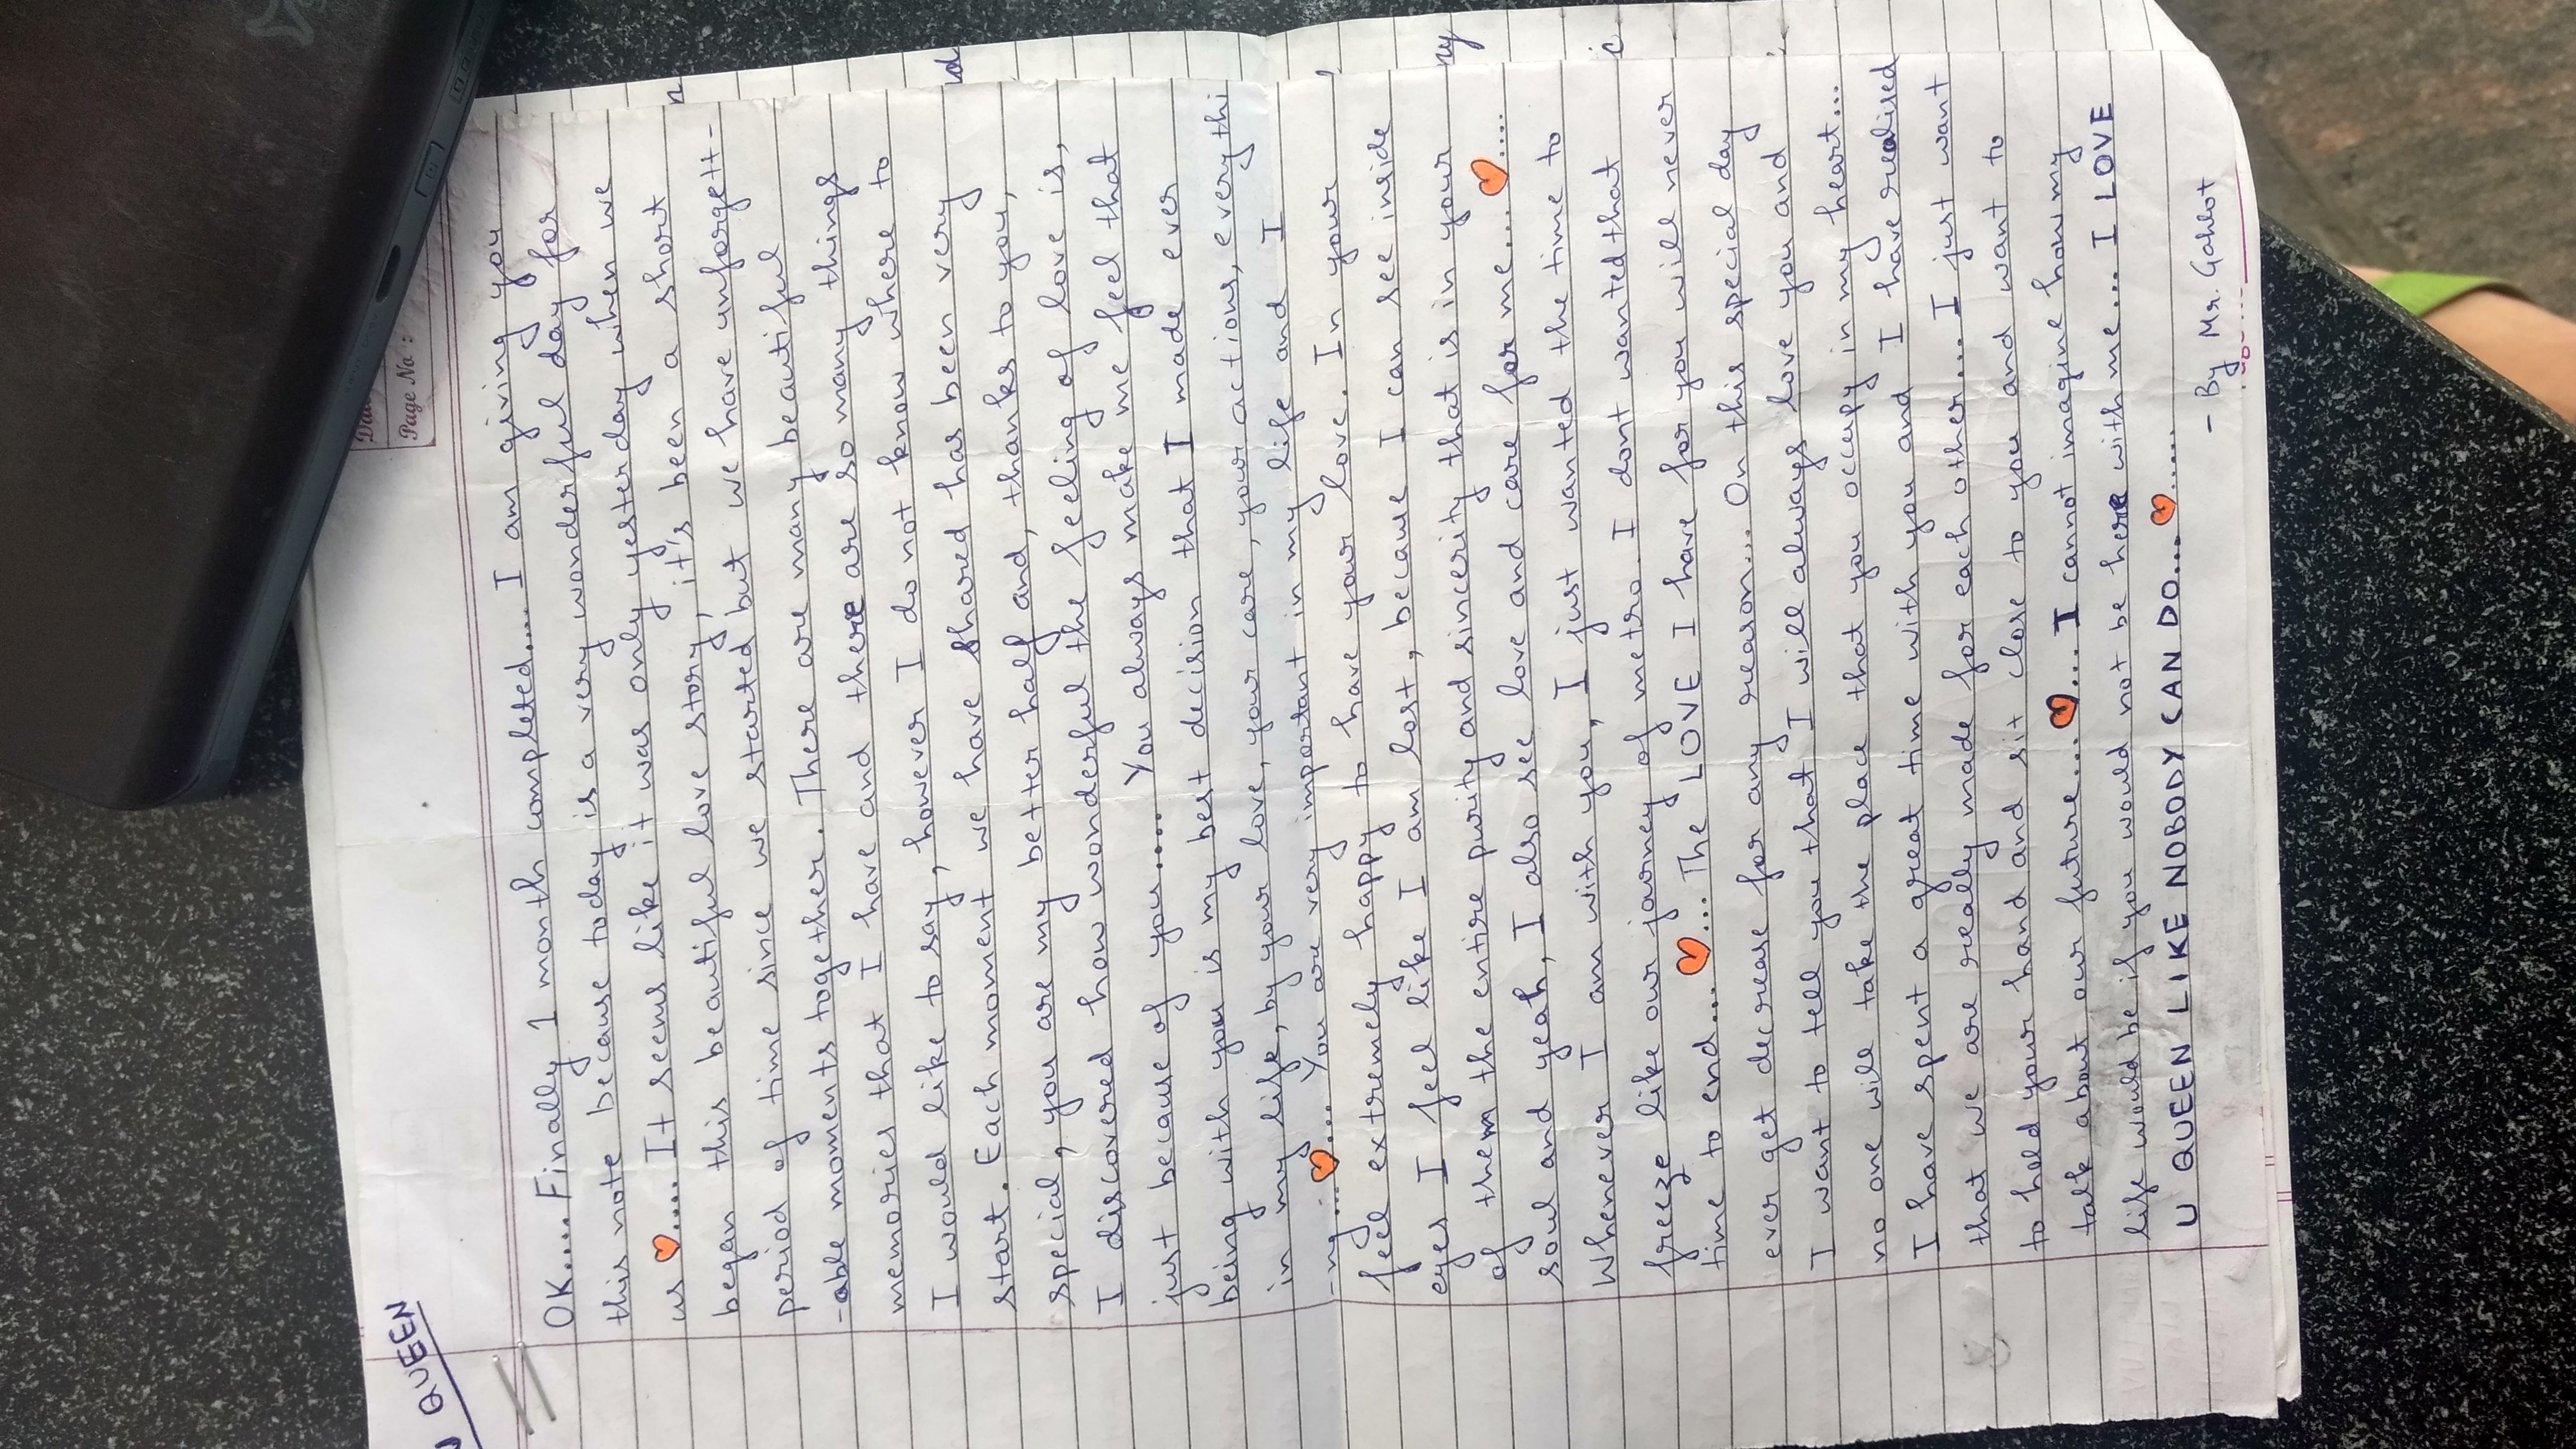 QUEEN
Page No :
OK.... Finally 1 month completed.... I am giving you
this note because today is a very wonderful day for
us ♡.... It seems like it was only yesterday when we
began this beautiful love story, it's been a short
period of time since we started but we have unforgett-
-able moments together. There are many beautiful
memories that I have and there are so many things
I would like to say, however I do not know where to
start. Each moment we have shared has been very
special, you are my better half and, thanks to you,
I discovered how wonderful the feeling of love is,
just because of you.... You always make me feel that
being with you is my best decision that I made ever
in my life, by your love, your care, your actions, everythi
-ng...♡... You are very important in my life and I
feel extremely happy to have your love. In your
eyes I feel like I am lost, because I can see inside
of them the entire purity and sincerity that is in your
soul and yeah, I also see love and care for me...♡....
Whenever I am with you, I just wanted the time to
freeze like our journey of metro. I dont wanted that
time to end...♡... The LOVE I have for you will never
ever get decrease for any reason... On this special day
I want to tell you that I will always love you and
no one will take the place that you occupy in my heart...
I have spent a great time with you and I have realised
that we are really made for each other... I just want
to hold your hand and sit close to you and want to
talk about our future...♡... I cannot imagine how my
life would be if you would not be here with me... I LOVE
U QUEEN LIKE NOBODY CAN DO...♡.....
- By Mr. Gahlot